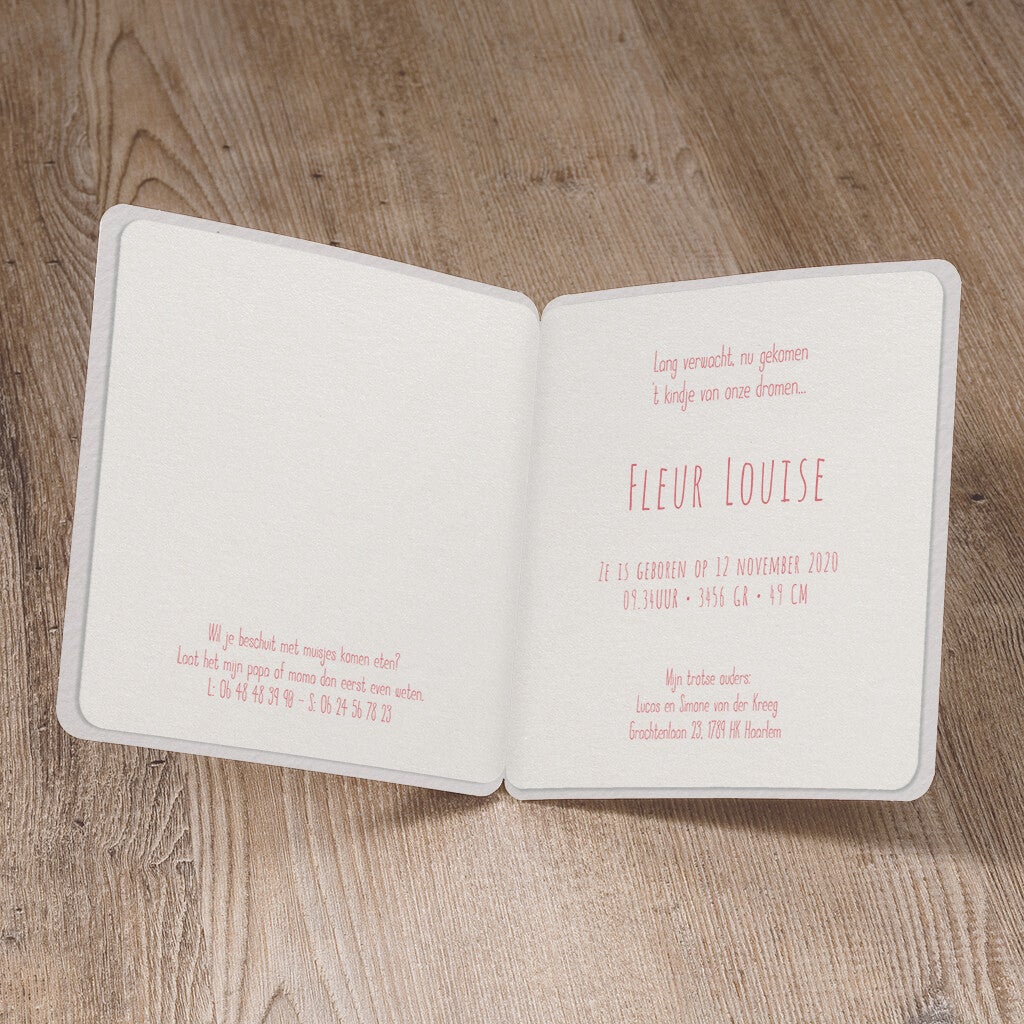 Wil je beschuit met muisjes komen eten?
Laat het mijn papa of mama dan eerst even weten.
L: 06 48 48 39 90 - S: 06 24 56 78 23
Lang verwacht, nu gekomen
't kindje van onze dromen...
FLEUR LOUISE
ZE IS GEBOREN OP 12 NOVEMBER 2020
09.34UUR • 3456 GR • 49 CM
Mijn trotse ouders:
Lucas en Simone van der Kreeg
Grachtenlaan 23, 1789 HK Haarlem